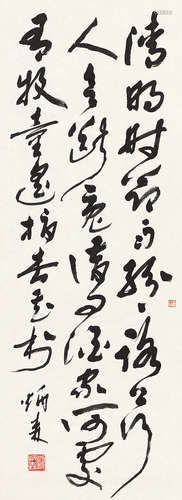 清明时節雨紛々路上行
人欲斷魂借问酒家何處
有牧童遥指杏花村
炳森